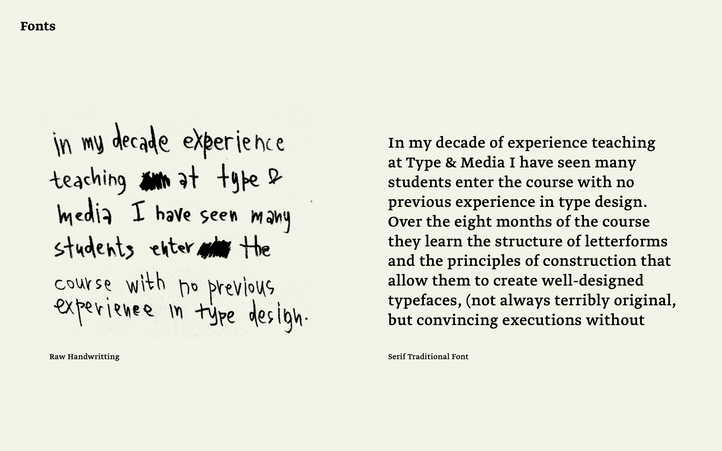 Fonts
in my decade experience
teaching at type &
media I have seen many
students enter the
course with no previous
experience in type design.
Raw Handwritting
In my decade of experience teaching
at Type & Media I have seen many
students enter the course with no
previous experience in type design.
Over the eight months of the course
they learn the structure of letterforms
and the principles of construction that
allow them to create well-designed
typefaces, (not always terribly original,
but convincing executions without
Serif Traditional Font